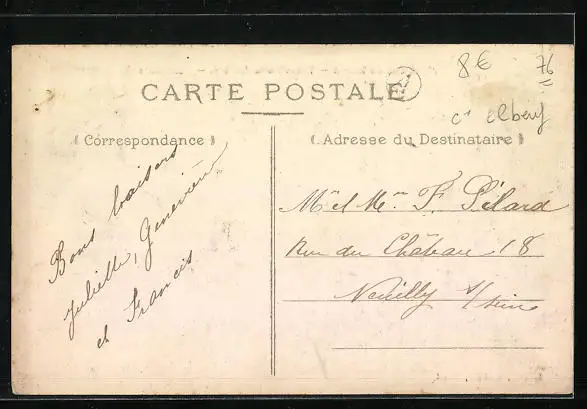 8 € 76
CARTE POSTALE
Cn Elbeuf
(Correspondance)
(Adresse du Destinataire)
Bons baisers
Juliette, Geneviève
et Francis
Mr et Mme F. Pélard
Rue du Château 18
Neuilly s/seine